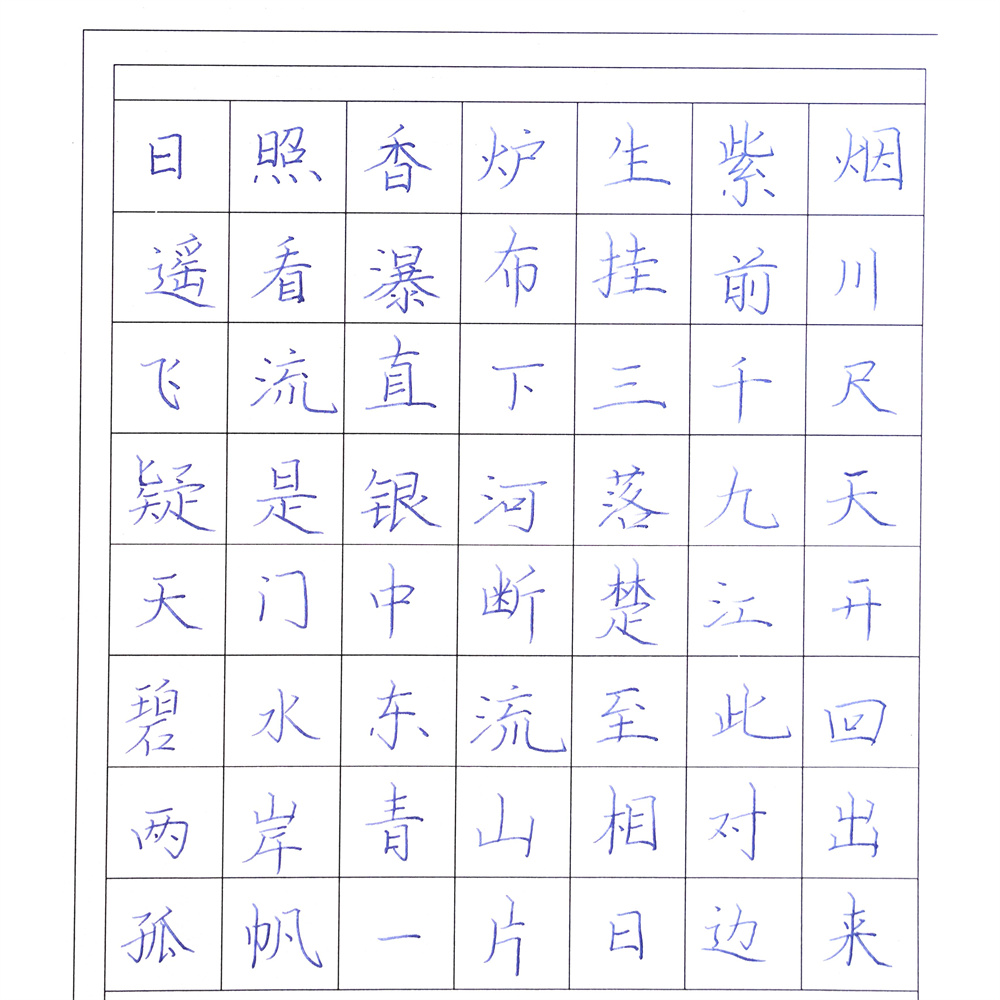 日照香炉生紫烟
遥看瀑布挂前川
飞流直下三千尺
疑是银河落九天
天门中断楚江开
碧水东流至此回
两岸青山相对出
孤帆一片日边来